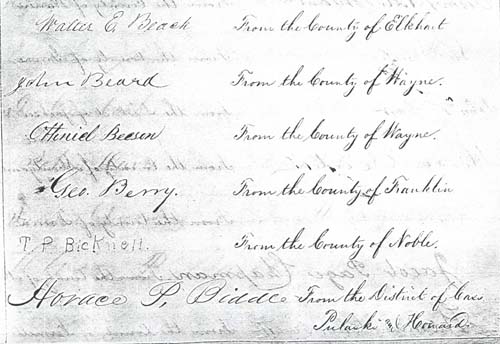 Walter E. Beach From the County of Elkhart
John Beard From the County of Wayne.
Othniel Beeson From the County of Wayne.
Geo. Berry. From the County of Franklin
T. P. Bicknell. From the County of Noble.
Horace P. Biddle From the District of Cass
Pulaski & Howard.